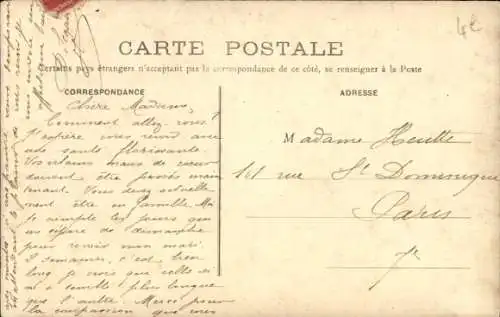 4€
CARTE POSTALE
Certains pays étrangers n'acceptant pas la correspondance de ce côté, se renseigner à la Poste
CORRESPONDANCE
ADRESSE
Chère Madame,
Comment allez-vous?
J'espère vous revoir avec
une santé florissante.
Vos vilains maux de cœur
doivent être passés main
tenant. Vous devez actuelle
ment être en famille. Moi
je compte les jours qui
me séparent de dimanche
pour revoir mon mari.
3 semaines, c'est bien
long je crois que celle-ci
m'a semblé plus longue
que l'autre. Merci pour
la compassion que vous
Madame Huette
161 rue St Dominique
Paris
7e